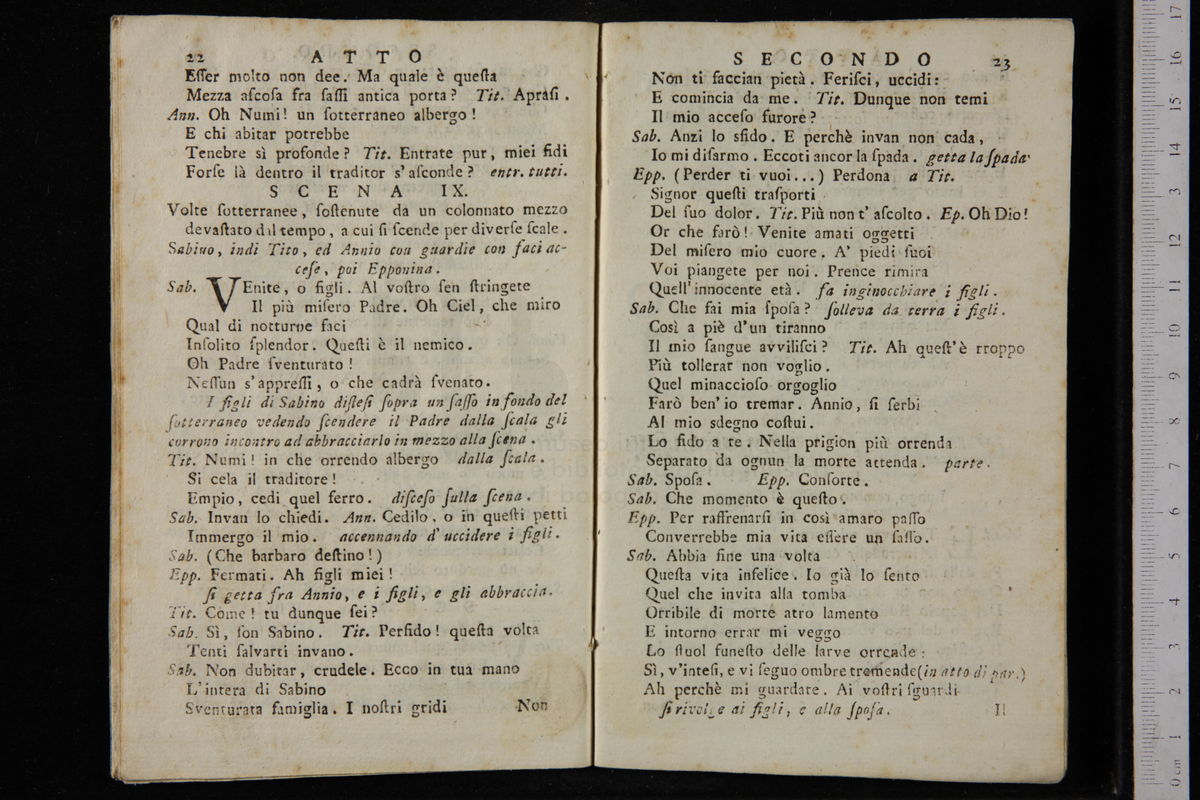 22 ATTO
Eſſer molto non dee. Ma quale è queſta
Mezza aſcoſa fra ſaſſi antica porta? Tit. Apraſi.
Ann. Oh Numi! un ſotterraneo albergo!
E chi abitar potrebbe
Tenebre sì profonde? Tit. Entrate pur, miei fidi
Forſe là dentro il traditor s'aſconde? entr. tutti.
SCENA IX.
Volte ſotterranee, ſoſtenute da un colonnato mezzo
devaſtato dal tempo, a cui ſi ſcende per diverſe ſcale.
Sabino, indi Tito, ed Annio con guardie con faci ac-
ceſe, poi Epponina.
Sab. VEnite, o figli. Al voſtro ſen ſtringete
Il più miſero Padre. Oh Ciel, che miro
Qual di notturne faci
Inſolito ſplendor. Queſti è il nemico.
Oh Padre ſventurato!
Neſſun s'appreſſi, o che cadrà ſvenato.
I figli di Sabino diſteſi ſopra un ſaſſo in fondo del
ſotterraneo vedendo ſcendere il Padre dalla ſcala gli
corrono incontro ad abbracciarlo in mezzo alla ſcena.
Tit. Numi! in che orrendo albergo dalla ſcala.
Si cela il traditore!
Empio, cedi quel ferro. diſceſo ſulla ſcena.
Sab. Invan lo chiedi. Ann. Cedilo, o in queſti petti
Immergo il mio. accennando d'uccidere i figli.
Sab. (Che barbaro deſtino!)
Epp. Fermati. Ah figli miei!
ſi getta fra Annio, e i figli, e gli abbraccia.
Tit. Come! tu dunque ſei?
Sab. Sì, ſon Sabino. Tit. Perfido! queſta volta
Tenti ſalvarti invano.
Sab. Non dubitar, crudele. Ecco in tua mano
L'intera di Sabino
Sventurata famiglia. I noſtri gridi Non
SECONDO 23
Non ti faccian pietà. Feriſci, uccidi:
E comincia da me. Tit. Dunque non temi
Il mio acceſo furore?
Sab. Anzi lo sfido. E perchè invan non cada,
Io mi diſarmo. Eccoti ancor la ſpada. getta la ſpada
Epp. (Perder ti vuoi...) Perdona a Tit.
Signor queſti traſporti
Del ſuo dolor. Tit. Più non t'aſcolto. Ep. Oh Dio!
Or che farò! Venite amati oggetti
Del miſero mio cuore. A' piedi ſuoi
Voi piangete per noi. Prence rimira
Quell'innocente età. fa inginocchiare i figli.
Sab. Che fai mia ſpoſa? ſolleva da terra i figli.
Così a piè d'un tiranno
Il mio ſangue avviliſci? Tit. Ah queſt'è rroppo
Più tollerar non voglio.
Quel minaccioſo orgoglio
Farò ben'io tremar. Annio, ſi ſerbi
Al mio sdegno coſtui.
Lo fido a te. Nella prigion più orrenda
Separato da ognun la morte attenda. parte.
Sab. Spoſa. Epp. Conſorte.
Sab. Che momento è queſto.
Epp. Per raffrenarſi in così amaro paſſo
Converrebbe mia vita eſſere un ſaſſo.
Sab. Abbia fine una volta
Queſta vita infelice. Io già lo ſento
Quel che invita alla tomba
Orribile di morte atro lamento
E intorno errar mi veggo
Lo ſtuol funeſto delle larve orrende:
Sì, v'inteſi, e vi ſeguo ombre tremende (in atto di par.)
Ah perchè mi guardate. Ai voſtri ſguardi
ſi rivolge ai figli, e alla ſpoſa. Il
0 cm 1 2 3 4 5 6 7 8 9 10 11 12 13 14 15 16 17